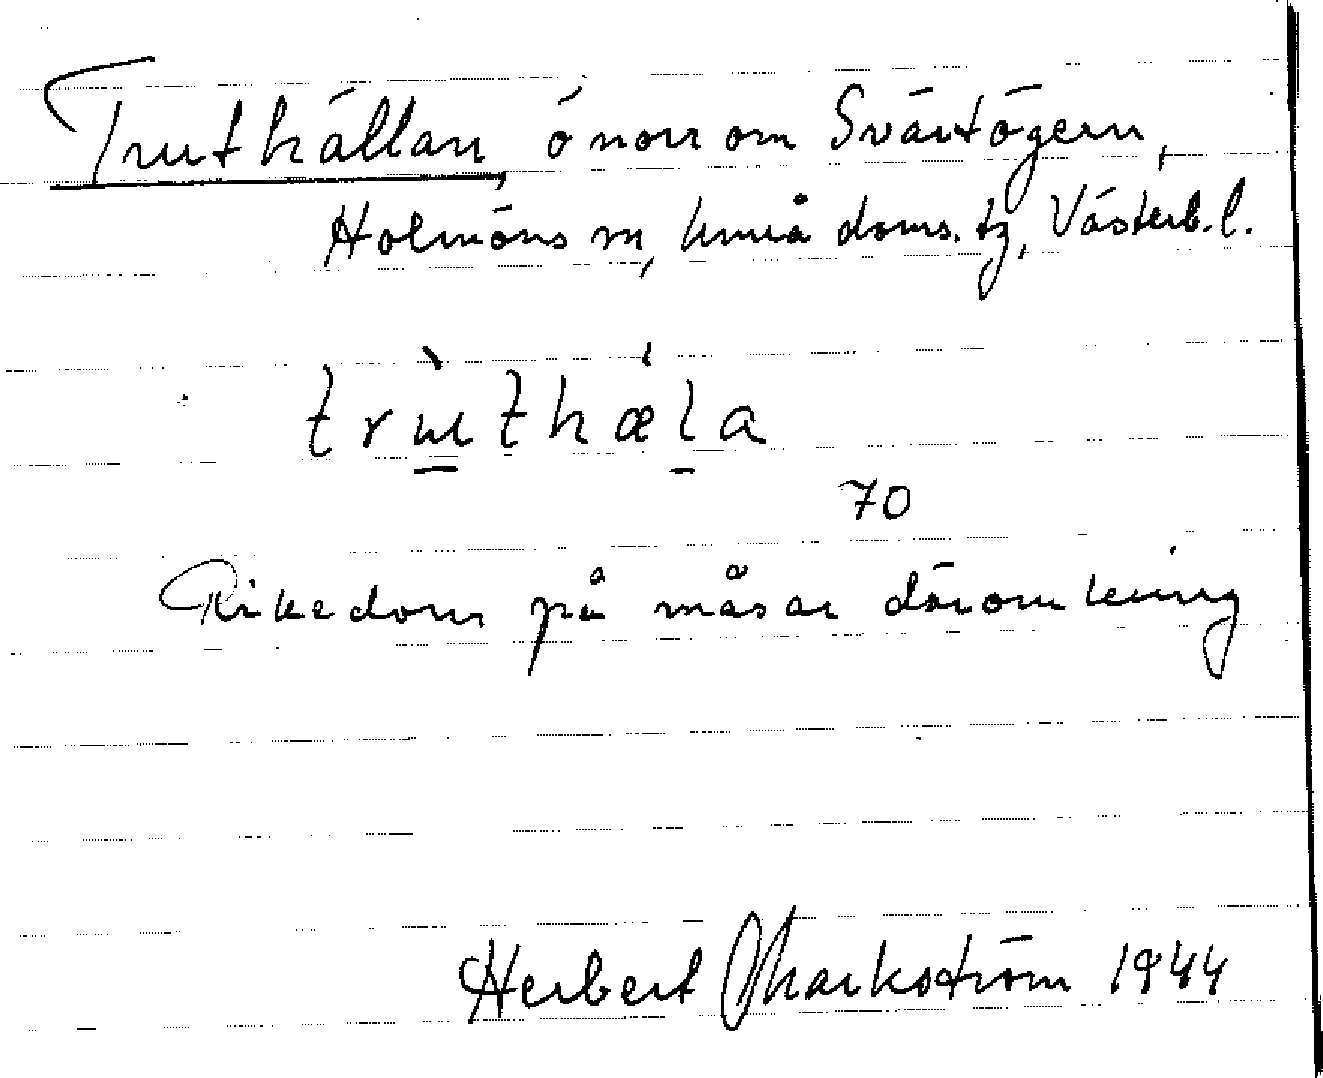 Truthällan, ö norr om Svärtögern,
Holmöns sn, Umeå doms. tg, Västerb. l.
trùthæ̍la
70
Rikedom på måsar däromkring
Herbert Markström 1944